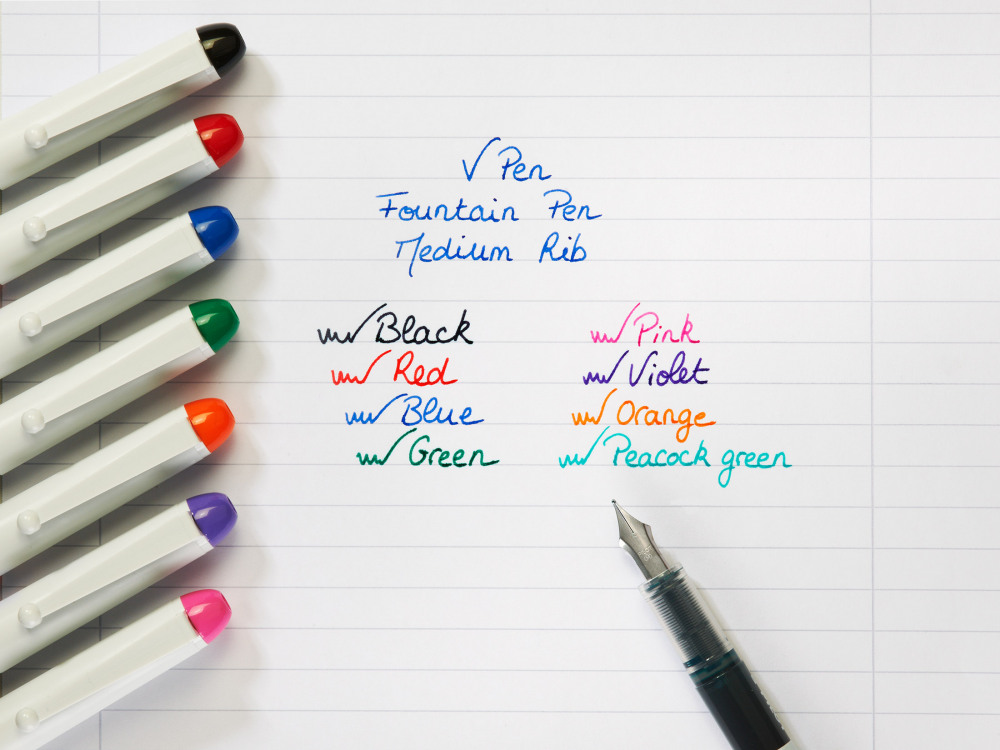 V Pen
Fountain Pen
Medium Rib
Black
Red
Blue
Green
Pink
Violet
Orange
Peacock green